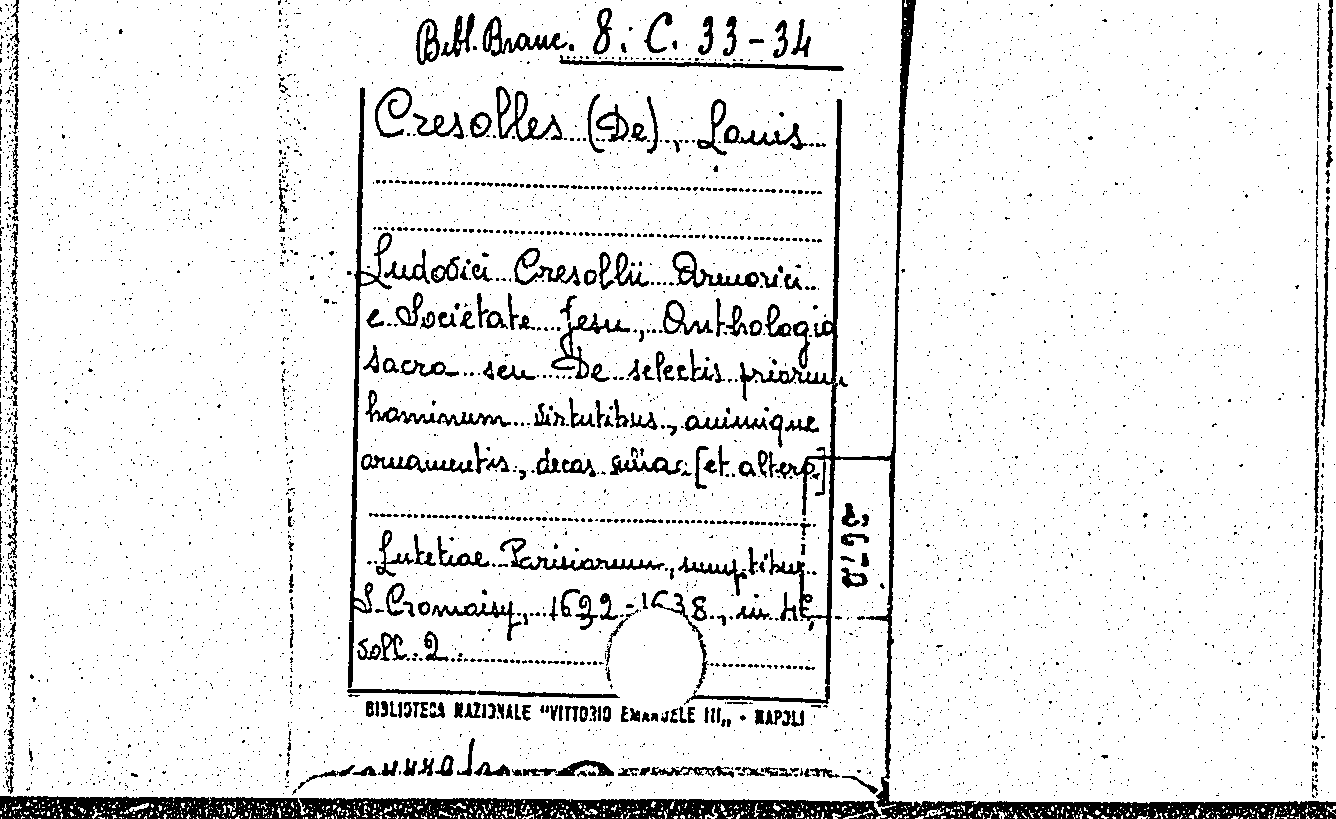 Bibl. Branc. 8. C. 33-34
Cresolles (De), Louis
Ludovici Cresollii Armorici
e Societate Jesu, Anthologia
sacra seu De selectis priorum
hominum virtutibus, animique
ornamentis, decas una [et altera]
Lutetiae Parisiorum, sumptibus
S. Cromoisy, 1632-1638, in 4°,
voll. 2.
BIBLIOTECA NAZIONALE "VITTORIO EMANUELE III" - NAPOLI